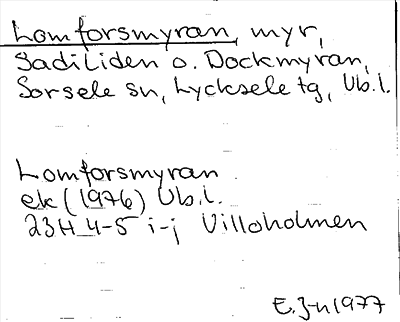 Lomforsmyran, myr,
Gadiliden o. Dockmyran,
Sorsele sn, Lycksele tg, Vb.l.
Lomforsmyran
ek (1976) Vb.l.
23H 4-5 i-j Villoholmen
E. J-n 1977